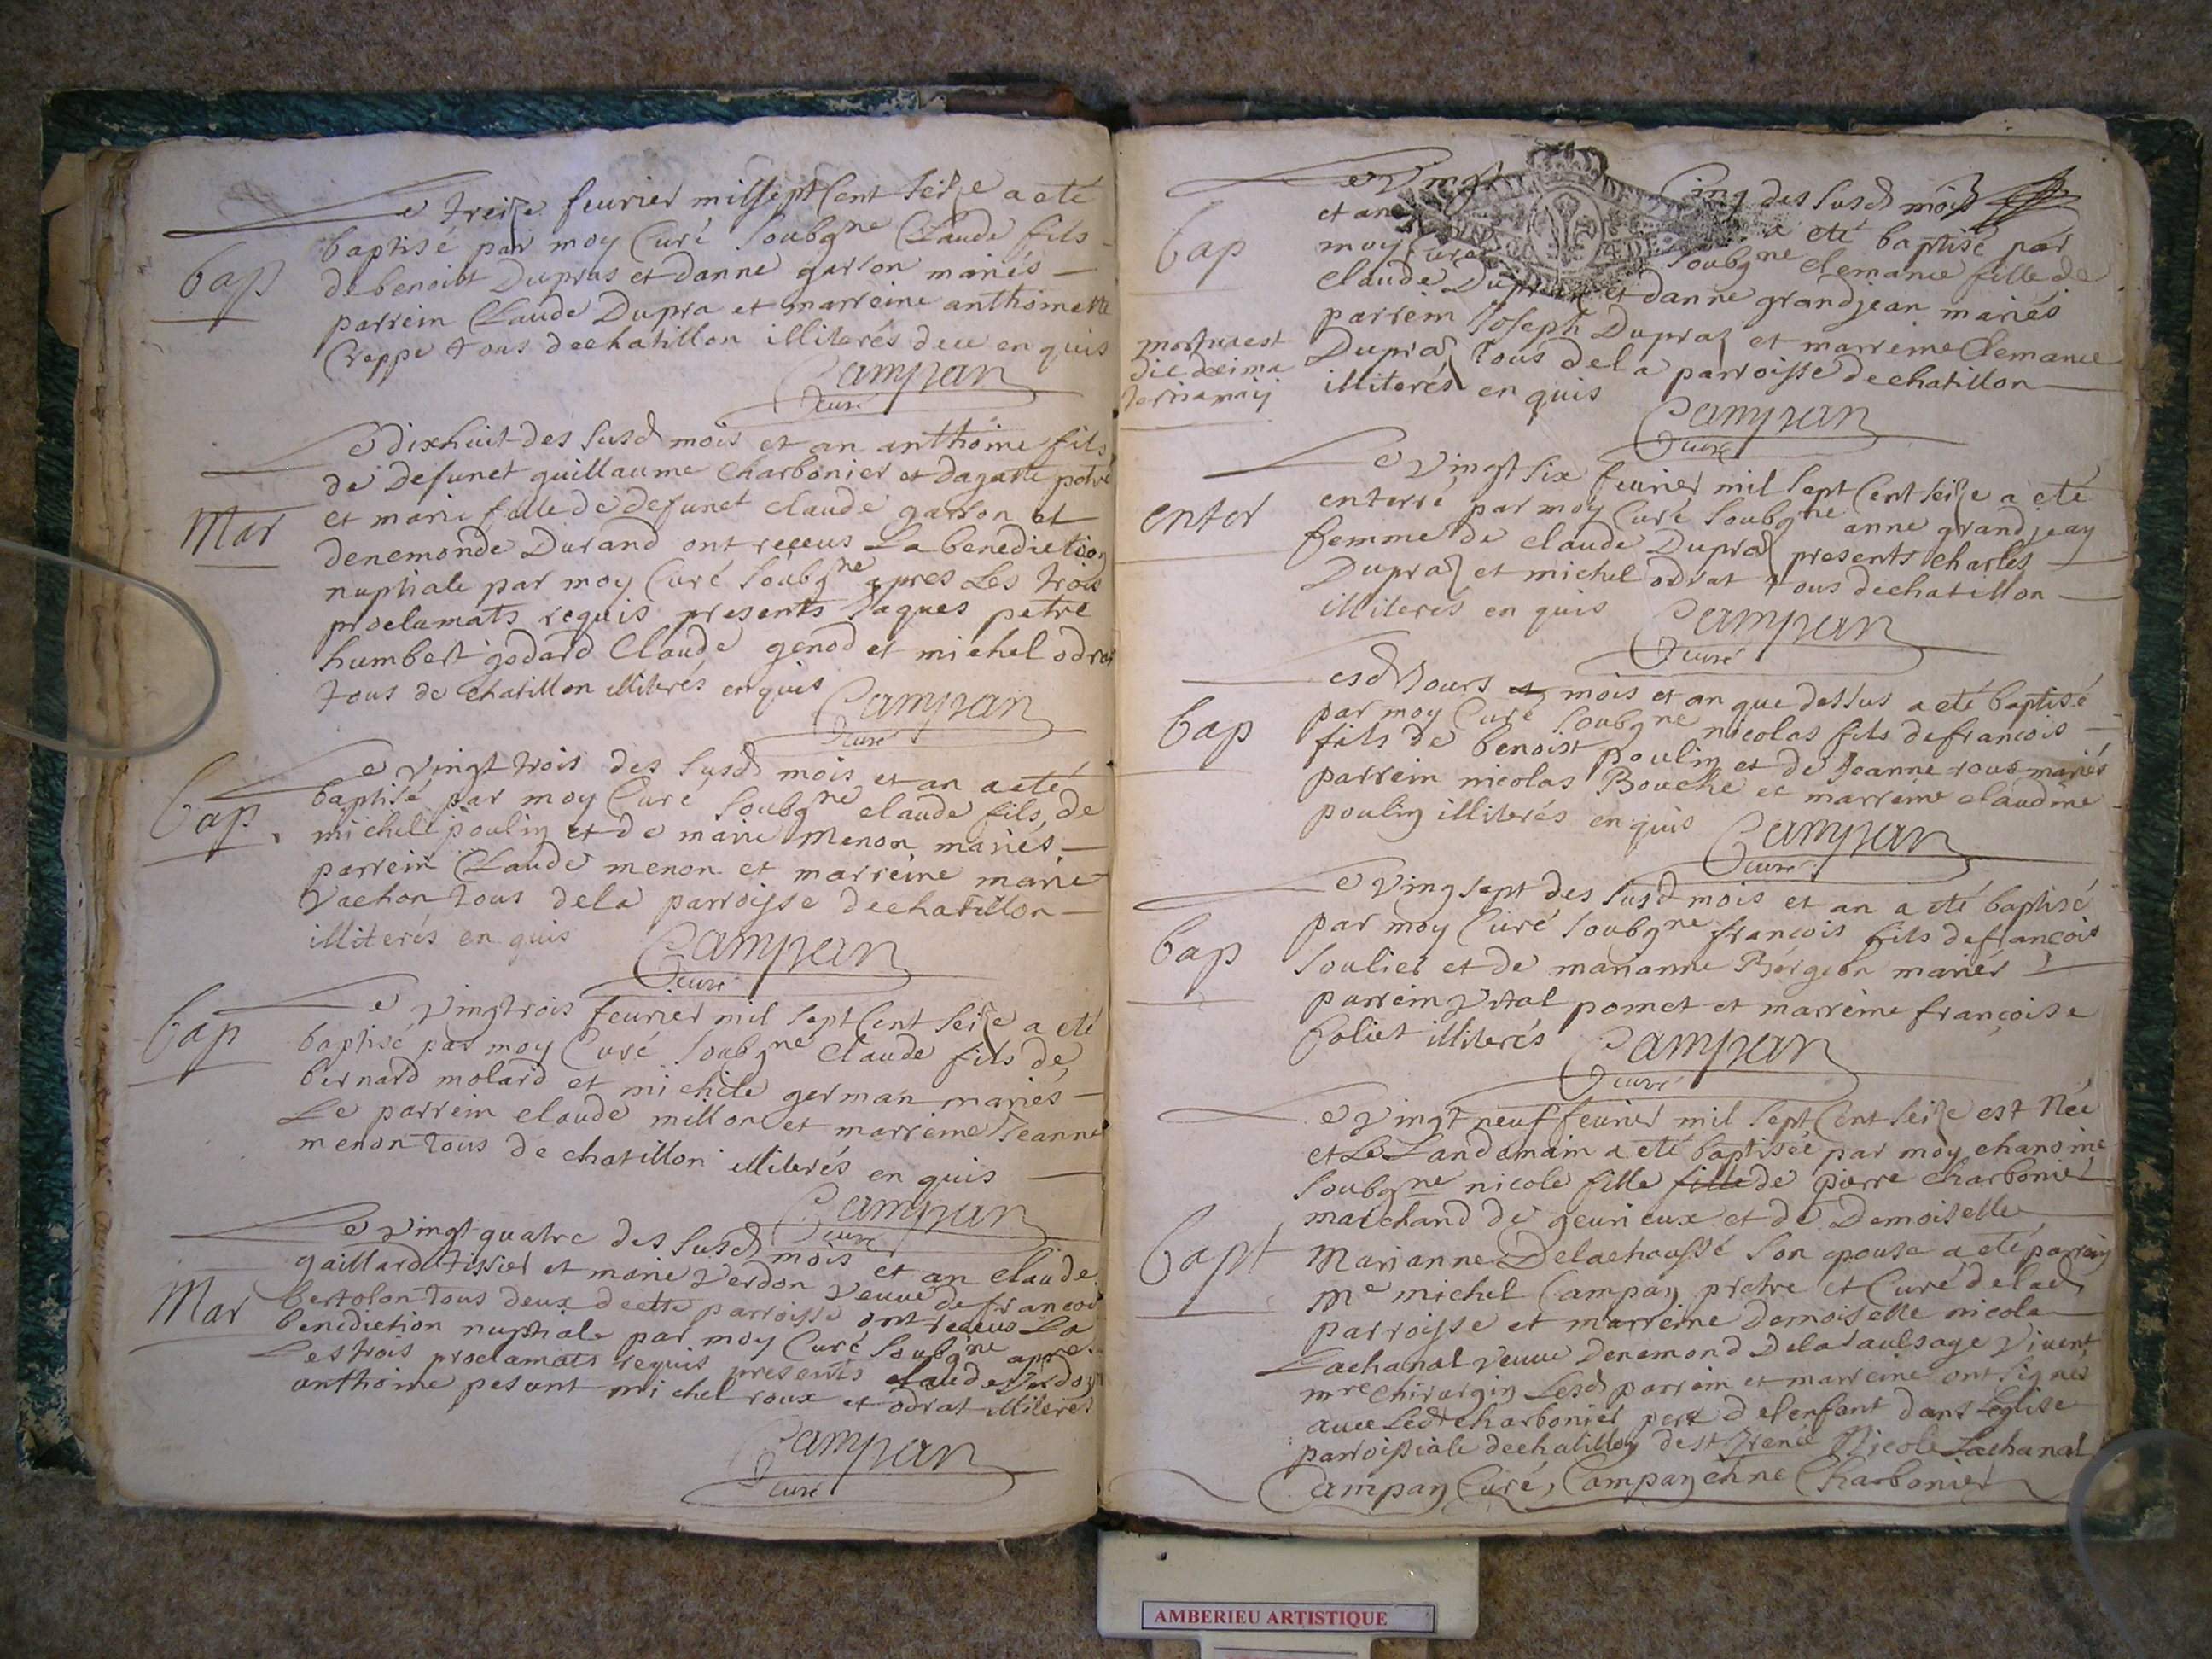 Le treize feurier mil sept Cent seize a eté
baptisé par moy Curé soubgne Claude fils
bap
de benoist Dupras et danne garson mariés
parrein Claude Dupra et marreine anthoinette
Creppe tous dechatillon illiterés deu enquis
Campan
Curé
Le dixhuit des susd mois et an anthoine fils
de Defunct guillaume Charbonier et dagatte petre
Mar
et marie fille de defunct claude garson et
denemonde Durand ont receus La benediction
nuptiale par moy Curé soubgne apres Les trois
proclamats requis presents Jaques petre
humbert godard Claude genod et michel odrat
tous de chatillon illiterés enquis
Campan
Curé
Le vingt trois des susd mois et an a eté
bap
baptisé par moy Curé soubgne claude fils de
michel poulin et de marie Menon mariés
parrein Claude menon et marreine marie
Vachon tous dela parroisse dechatillon
illiterés en quis
Campan
Curé
Le vingtrois feurier mil sept Cent seize a eté
bap
baptisé par moy Curé soubgne Claude fils de
bernard molard et michele german mariés
Le parrein claude millon et marreine Jeanne
menon tous de chatillon illiterés en quis
Campan
Curé
Le vingt quatre des susd mois et an claude
gaillard tissier et marie Verdon veuue de francois
Mar
bertolon tous deux decette parroisse ont receus La
benediction nuptiale par moy Curé soubgne apres
Les trois proclamats requis presents claude Verdon
anthoine pesant michel roux et odrat illiterés
Campan
Curé
Le Vingt Cinq des susd mois
et an a eté baptisé par
bap
moy Curé soubgne Clemance fille de
Claude Dupraz et danne grandjean mariés
parrein Joseph Dupraz et marreine Clemance
mortua est
die decima
tertia maij
Dupraz tous dela parroisse dechatillon
illiterés en quis
Campan
Curé
Le vingt six feurier mil sept Cent seize a eté
enter
enterré par moy Curé soubgne anne grandjean
femme de claude Dupraz presents charles
Dupraz et michel odrat tous dechatillon
illiterés en quis
Campan
Curé
Lesd Jours et mois et an que dessus a eté baptisé
bap
par moy Curé soubgne nicolas fils de francois
fils de benoist poulin et de Joanne roux mariés
parrein nicolas Bouché et marreine claudine
poulin illiterés en quis
Campan
Curé
Le Ving sept des susd mois et an a eté baptisé
bap
par moy Curé soubgne francois fils de francois
soulier et de marianne Bergeon mariés
parrein Vital pomet et marreine françoise
foliet illiterés
Campan
Curé
Le Vingt neuf feurier mil sept Cent seize est Née
et Le Landemain a eté baptisée par moy chanoine
soubgné nicole fille fille de pierre Charbonier
marchand de geurieux et de Demoiselle
Bapt
Marianne Delachaussé son epouse a eté parrein
Me michel Campan pretre et Curé de lad
parroisse et marreine Demoiselle nicole
Lachanal veuue denemond Dela saulsaye Vivent
mre chirurgin Lesd parrein et marreine ont signés
auec Ledt charbonier pere delenfant dans Leglise
parroissiale dechatillon de st Irenée Nicole Lachanal
Campan Curé, Campan chne Charbonier
AMBERIEU ARTISTIQUE